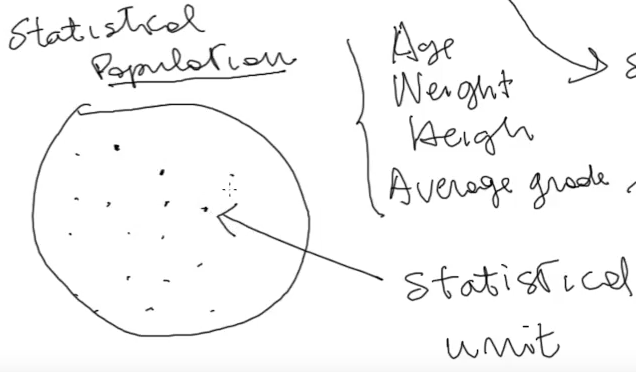 Statistical
Population
Age
Weight
Heigh
Average grade
Statistical
unit